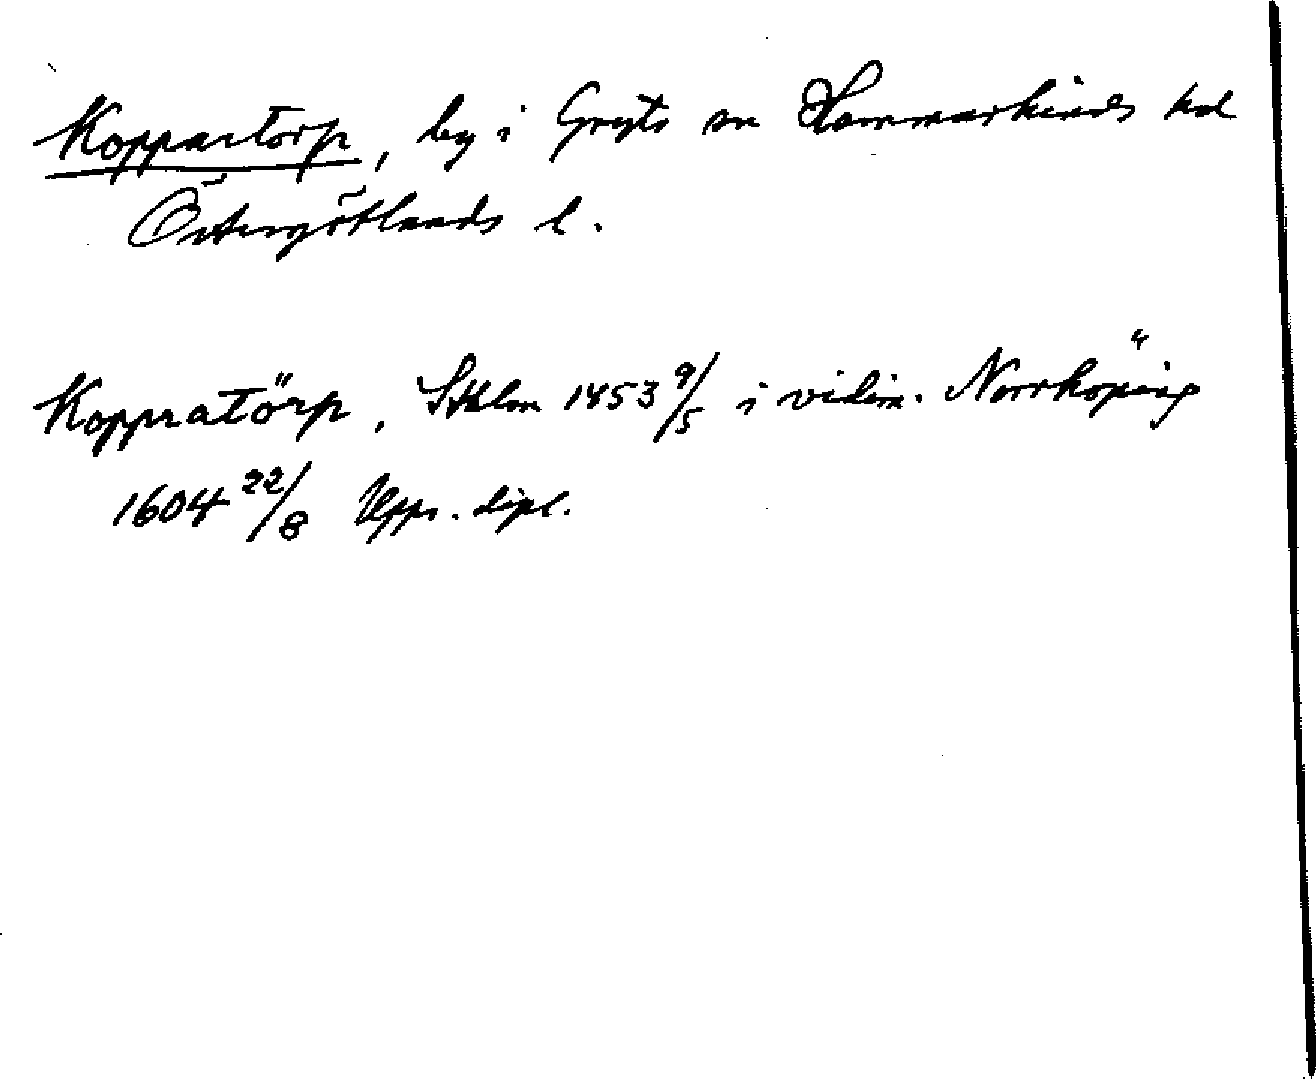 Koppartorp, by i Gryts sn Hammarkinds hd
Östergötlands l.
Koppratörp, Sthlm 1453 9/5 i vidim. Norrköping
1604 22/8 Upps. dipl.